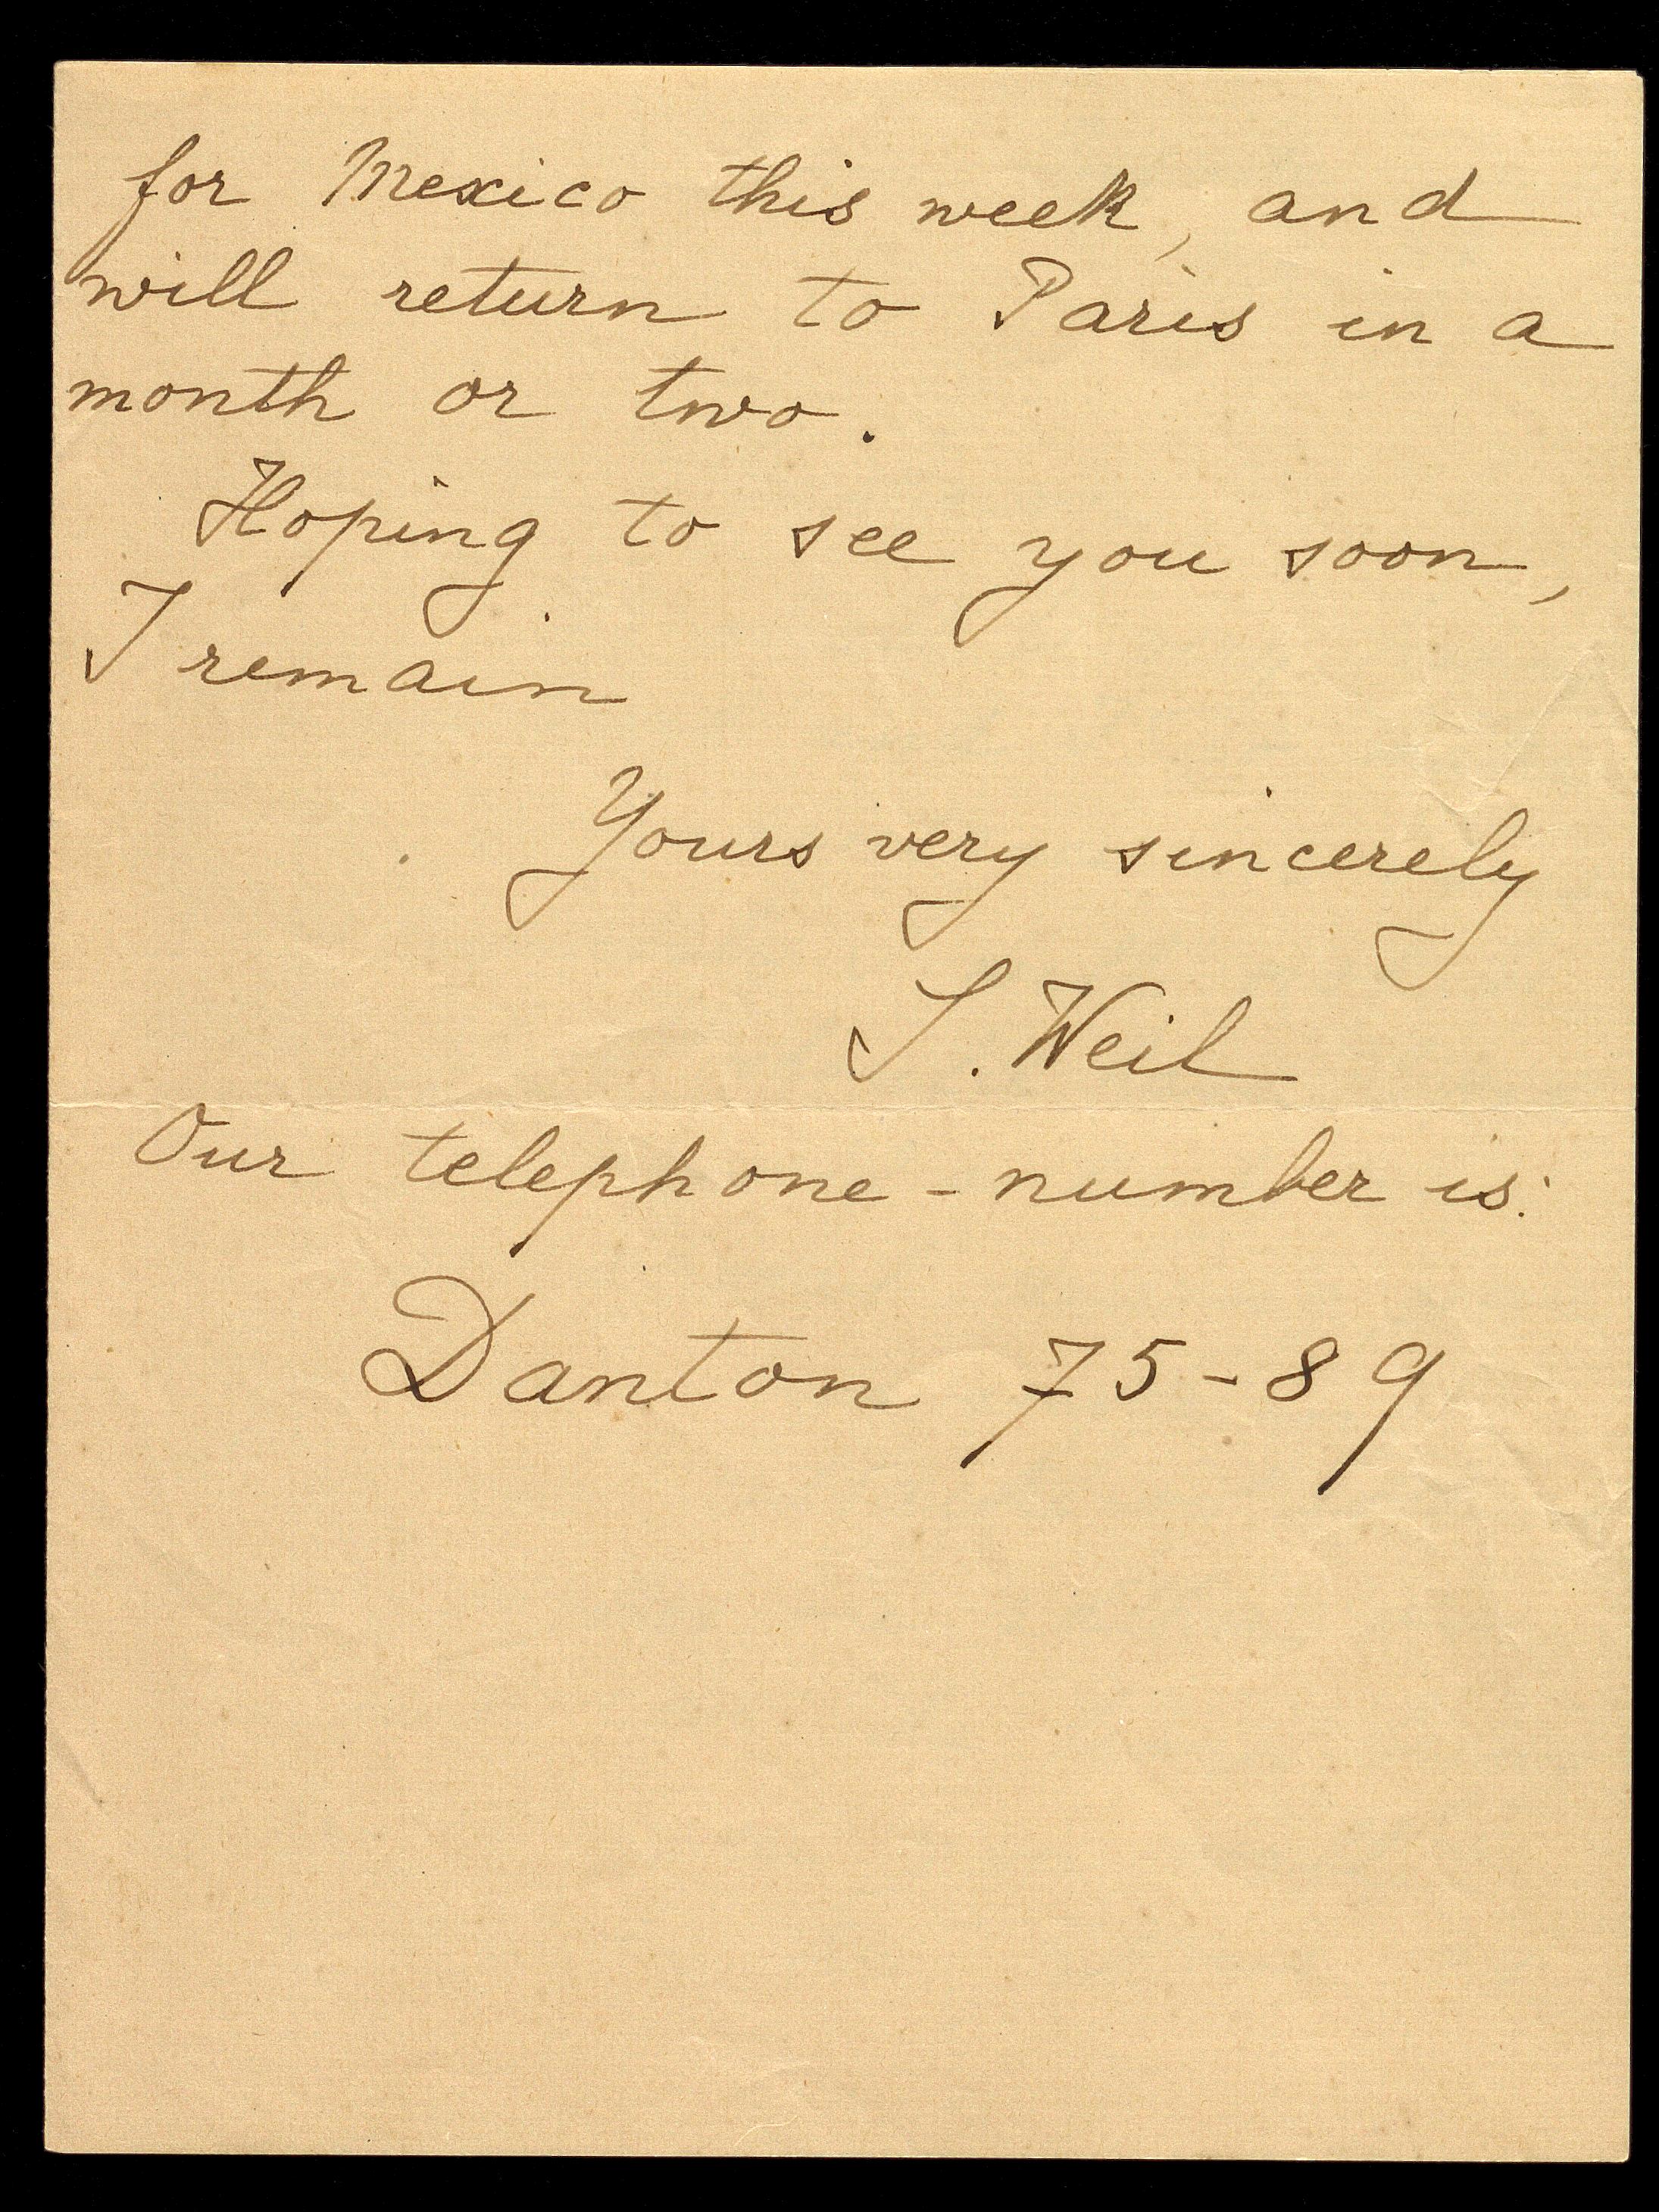 for Mexico this week, and
will return to Paris in a
month or two.
Hoping to see you soon,
I remain
Yours very sincerely
S. Weil
Our telephone-number is:
Danton 75-89